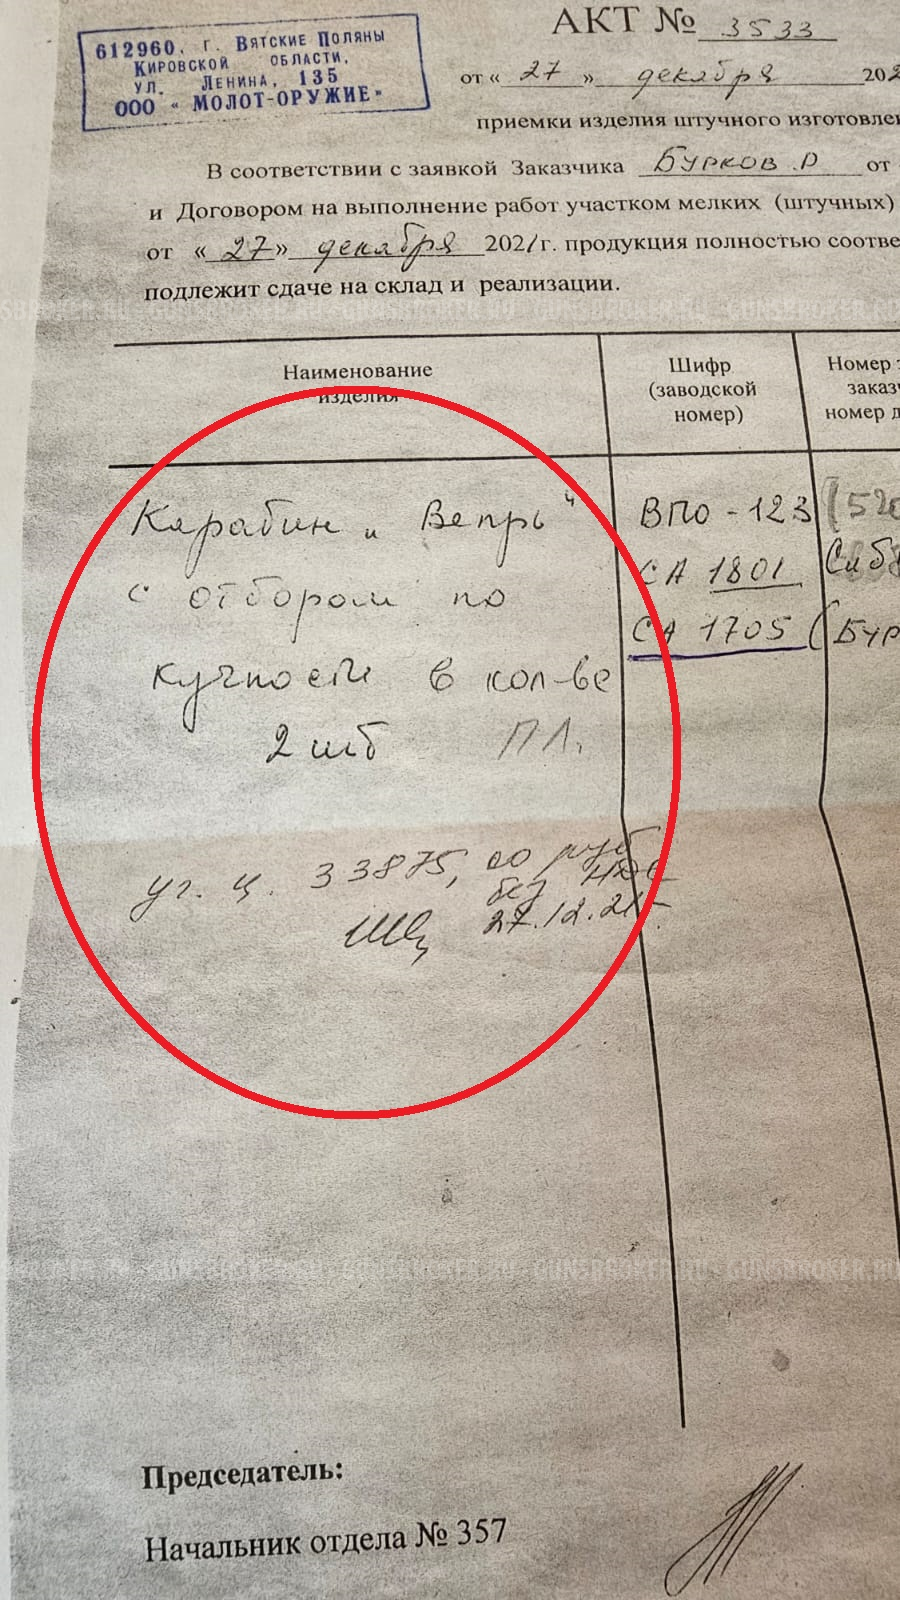 612960, г. Вятские Поляны
Кировской области,
ул. Ленина, 135
ООО «МОЛОТ-ОРУЖИЕ»
АКТ № 3533
от « 27 » декабря 202
приемки изделия штучного изготовлен
В соответствии с заявкой Заказчика Бурков .Р от
и Договором на выполнение работ участком мелких (штучных)
от « 27 » декабря 2021г. продукция полностью соответ
подлежит сдаче на склад и реализации.
GUNSBROKER.RU
Наименование изделия
Шифр (заводской номер)
Номер
заказ
номер д
Карабин „Вепрь" ВПО - 123 (520
с отбором по СА 1801 Сиб
кучности в кол-ве СА 1705 (Бур
2 шт ПЛ.
уг. ц. 33875, 00 руб
без НДС
27.12.21г.
GUNSBROKER.RU
Председатель:
Начальник отдела № 357